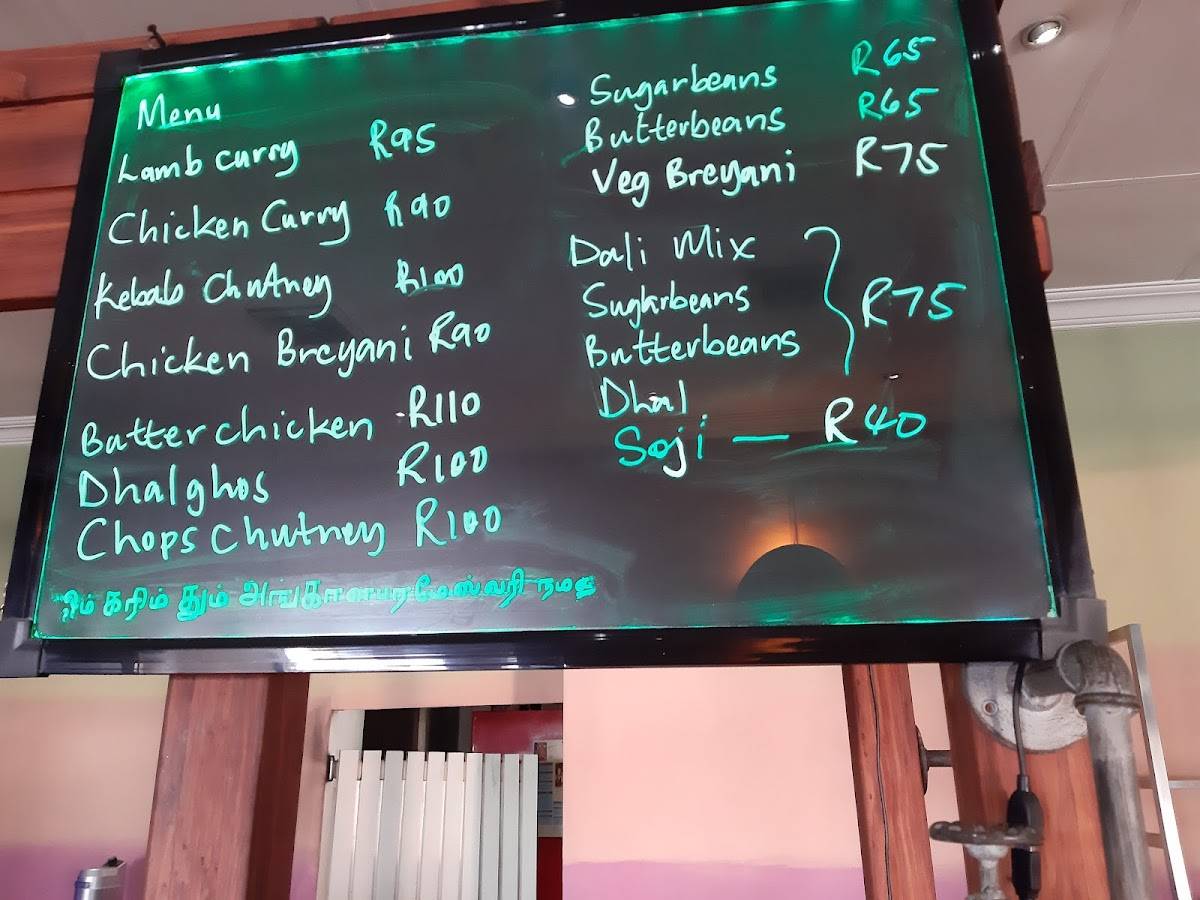 Menu
Lamb curry R95
Chicken Curry R90
Kebab Chutney R100
Chicken Breyani R90
Butter chicken R110
Dhalghos R100
Chops Chutney R100
கரிம் தும்
Sugarbeans R65
Butterbeans R65
Veg Breyani R75
Dali Mix
Sugarbeans R75
Butterbeans
Dhal
Soji — R40